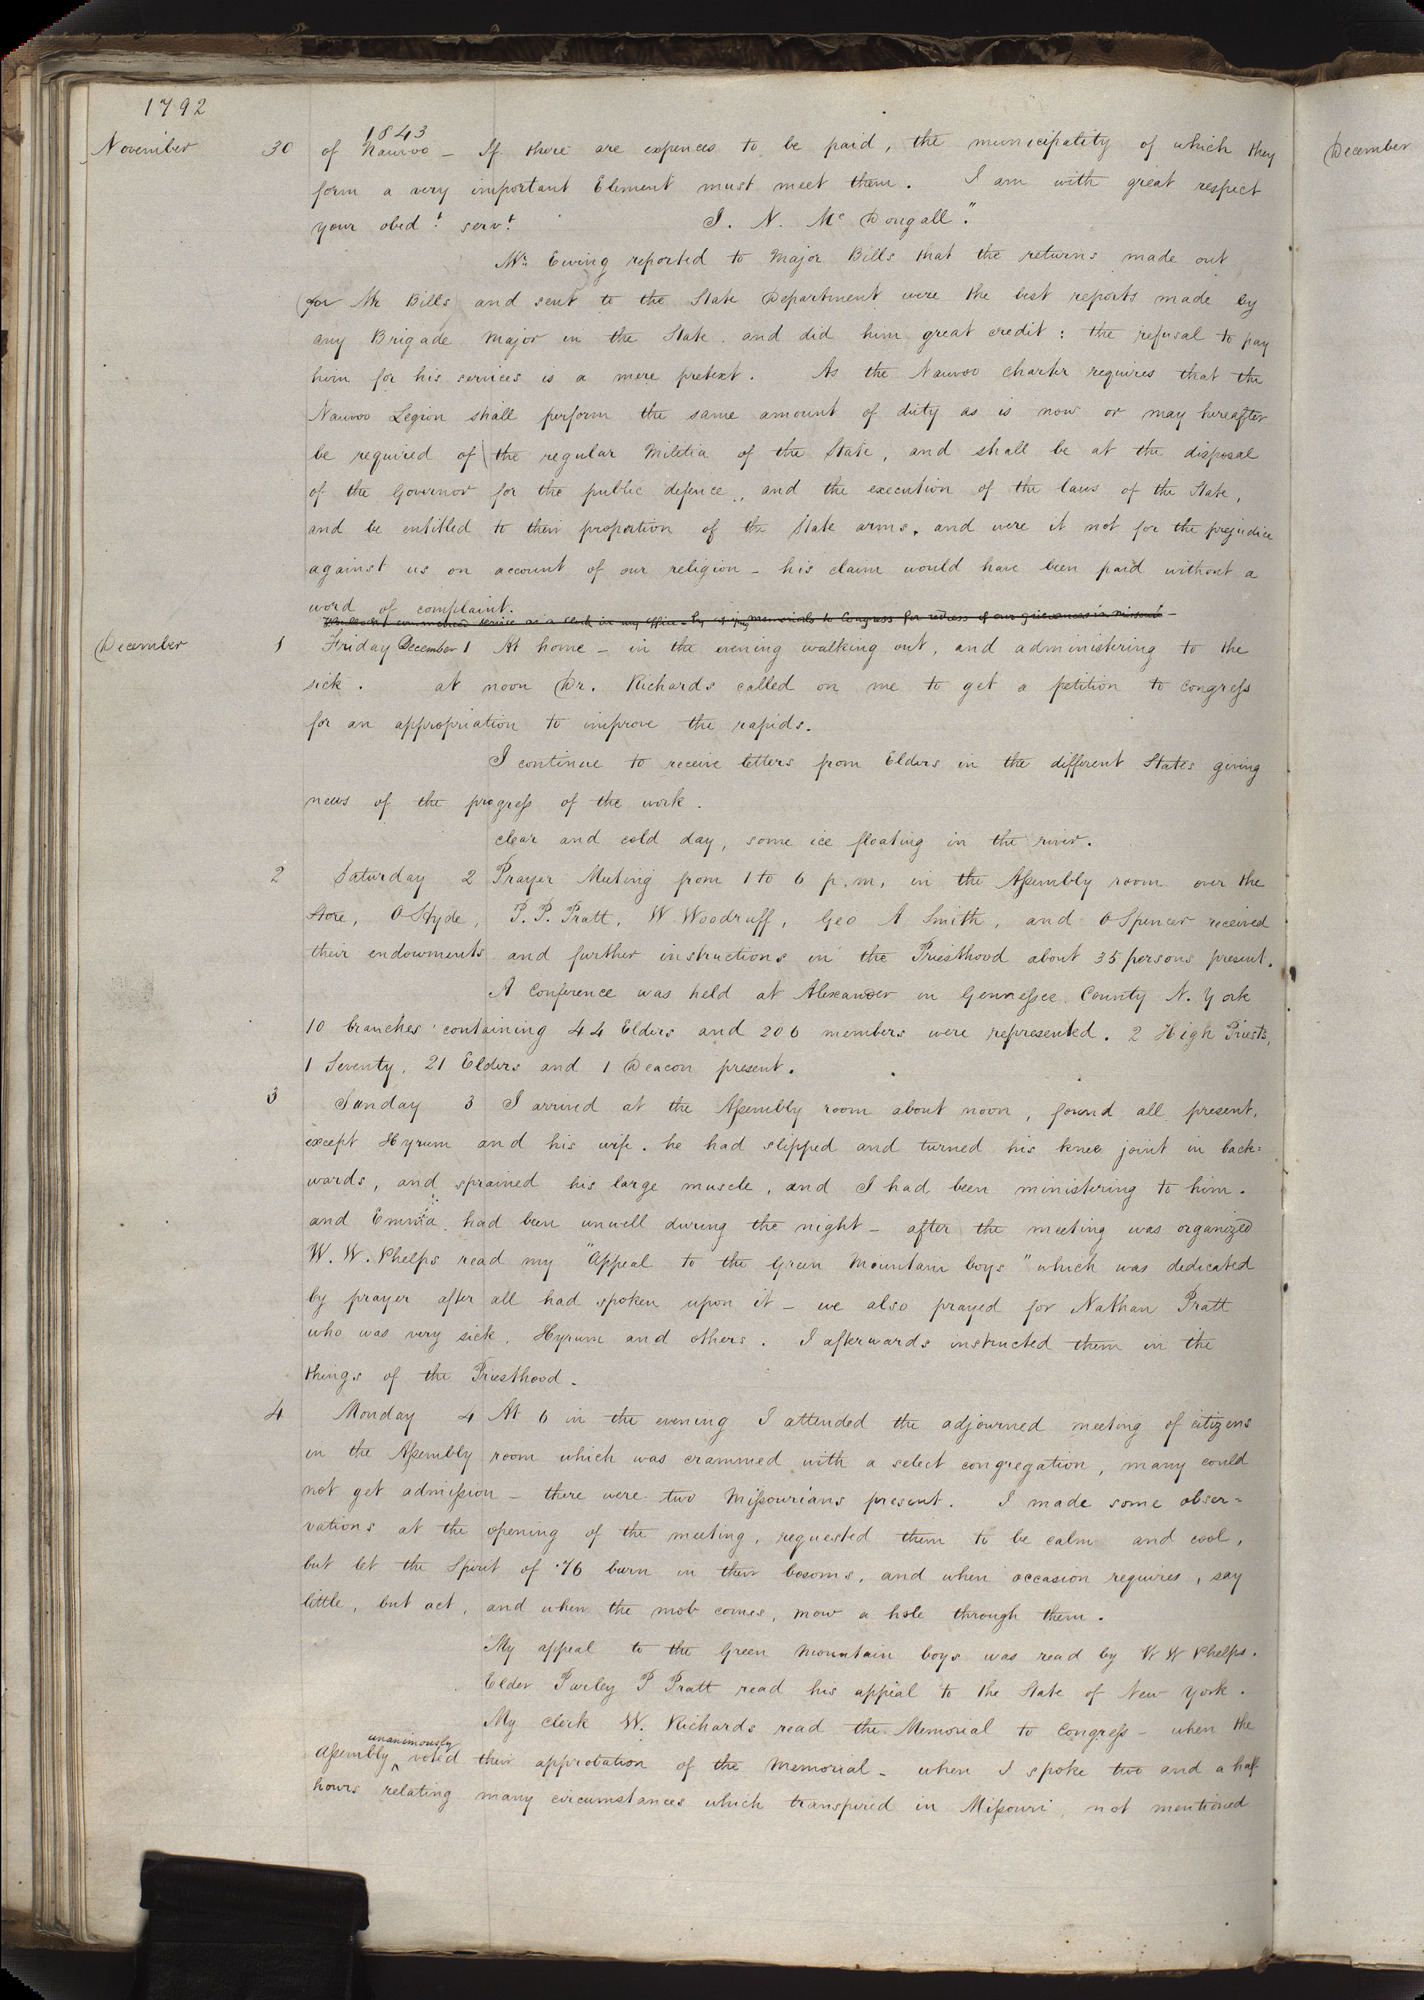 1792
1843
November 30 of Nauvoo – If there are expences to be paid, the municipality of which they
form a very important Element must meet them. I am with great respect
your obedt. servt. J. N. Mc Dougall."
Mr. Ewing reported to Major Bills that the returns made out
for Mr Bills and sent to the State Department were the best reports made by
any Brigade Major in the State. and did him great credit: the refusal to pay
him for his services is a mere pretext. As the Nauvoo Charter requires that the
Nauvoo Legion shall perform the same amount of duty as is now or may hereafter
be required of the regular Militia of the State, and shall be at the disposal
of the Governor for the public defence, and the execution of the laws of the State,
and be entitled to their proportion of the State arms. and were it not for the prejudice
against us on account of our religion – his claim would have been paid without a
word of complaint.
commenced service as a clerk in my office – memorials to Congress for redress of our grievances in Missouri –
December 1 Friday December 1 At home – in the evening walking out, and administering to the
sick. at noon Dr. Richards called on me to get a petition to Congress
for an appropriation to improve the rapids.
I continue to receive letters from Elders in the different States giving
news of the progress of the work.
clear and cold day, some ice floating in the river.
2 Saturday 2 Prayer Meeting from 1 to 6 p.m. in the Assembly room over the
Store, O Hyde, P. P. Pratt, W Woodruff, Geo A Smith, and O Spencer received
their endowments and further instructions in the Priesthood about 35 persons present.
A Conference was held at Alexander in Gennessee County N. York
10 branches containing 44 Elders and 206 members were represented. 2 High Priests,
1 Seventy, 21 Elders and 1 Deacon present.
3 Sunday 3 I arrived at the Assembly room about noon, found all present,
except Hyrum and his wife. he had slipped and turned his knee joint in back=
wards, and sprained his large muscle, and I had been ministering to him.
and Emma had been unwell during the night – after the meeting was organized
W. W. Phelps read my "Appeal to the Green Mountain boys" which was dedicated
by prayer after all had spoken upon it – we also prayed for Nathan Pratt
who was very sick, Hyrum and others. I afterwards instructed them in the
things of the Priesthood.
4 Monday 4 At 6 in the evening I attended the adjourned meeting of citizens
in the Assembly room which was crammed with a select congregation, many could
not get admission – there were two Missourians present. I made some obser=
vations at the opening of the meeting, requested them to be calm and cool,
but let the Spirit of '76 burn in their bosoms, and when occasion requires, say
little, but act, and when the mob comes, mow a hole through them.
My appeal to the Green Mountain boys was read by W W Phelps.
Elder Parley P Pratt read his appeal to the State of New York.
My clerk W. Richards read the Memorial to Congress – when the
unanimously
Assembly ^ voted their approbation of the Memorial – when I spoke two and a half
hours relating many circumstances which transpired in Missouri, not mentioned
December